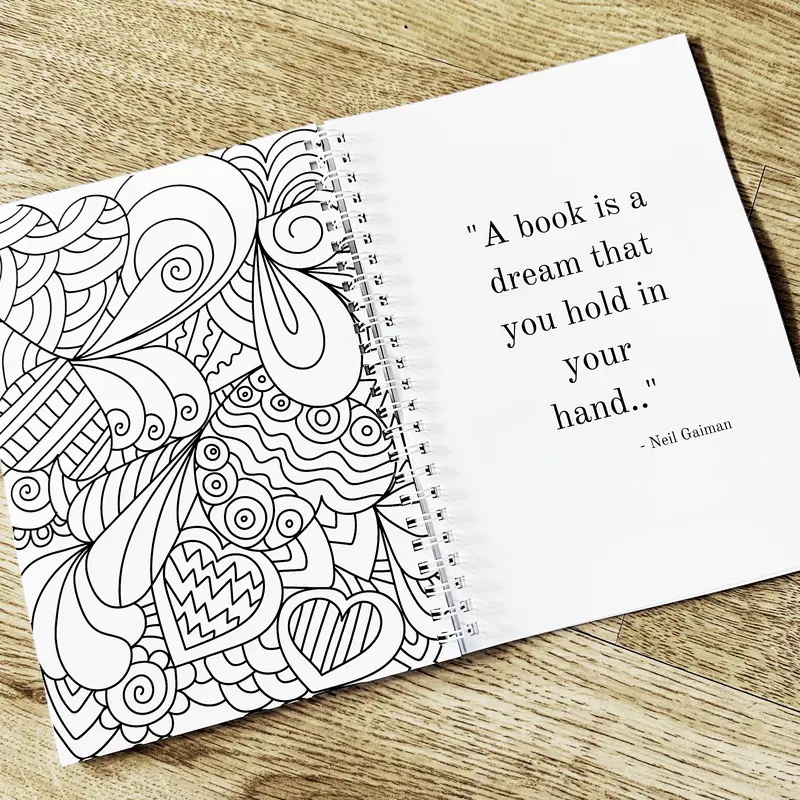 "A book is a
dream that
you hold in
your
hand.."
- Neil Gaiman